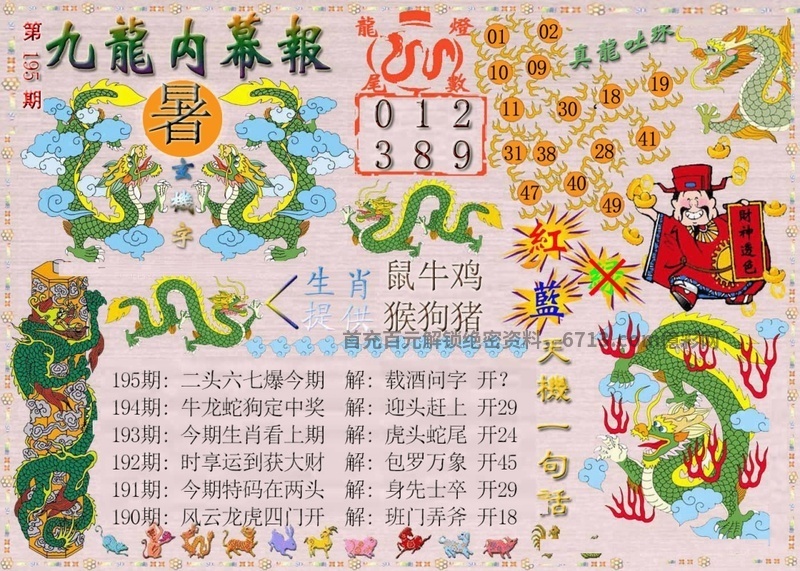 第195期
九龍内幕報
暑
玄機字
龍燈
尾數
0 1 2
3 8 9
真龍吐珠
01 02
10 09
11 30 18 19
31 38 28 41
47 40 49
財神透色
紅
藍
生肖
提供
鼠牛鸡
猴狗猪
首充百元解锁绝密资料
天機一句話
195期: 二头六七爆今期 解: 载酒问字 开?
194期: 牛龙蛇狗定中奖 解: 迎头赶上 开29
193期: 今期生肖看上期 解: 虎头蛇尾 开24
192期: 时享运到获大财 解: 包罗万象 开45
191期: 今期特码在两头 解: 身先士卒 开29
190期: 风云龙虎四门开 解: 班门弄斧 开18